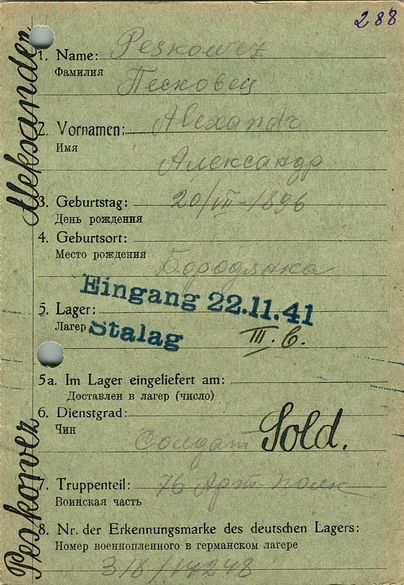 288
1. Name: Peskowez
Фамилия
Песковец
2. Vornamen: Alexandr
Имя
Александр
3. Geburtstag: 20/VII-1896
День рождения
4. Geburtsort:
Место рождения
Бородянка
Eingang 22.11.41
5. Lager:
Лагерь
Stalag
III. B.
5a. Im Lager eingeliefert am:
Доставлен в лагерь (число)
6. Dienstgrad:
Чин
Солдат
Sold.
7. Truppenteil: 76 Арт. полк
Воинская часть
8. Nr. der Erkennungsmarke des deutschen Lagers:
Номер военнопленного в германском лагере
318/14248
Peskovez Aleksander